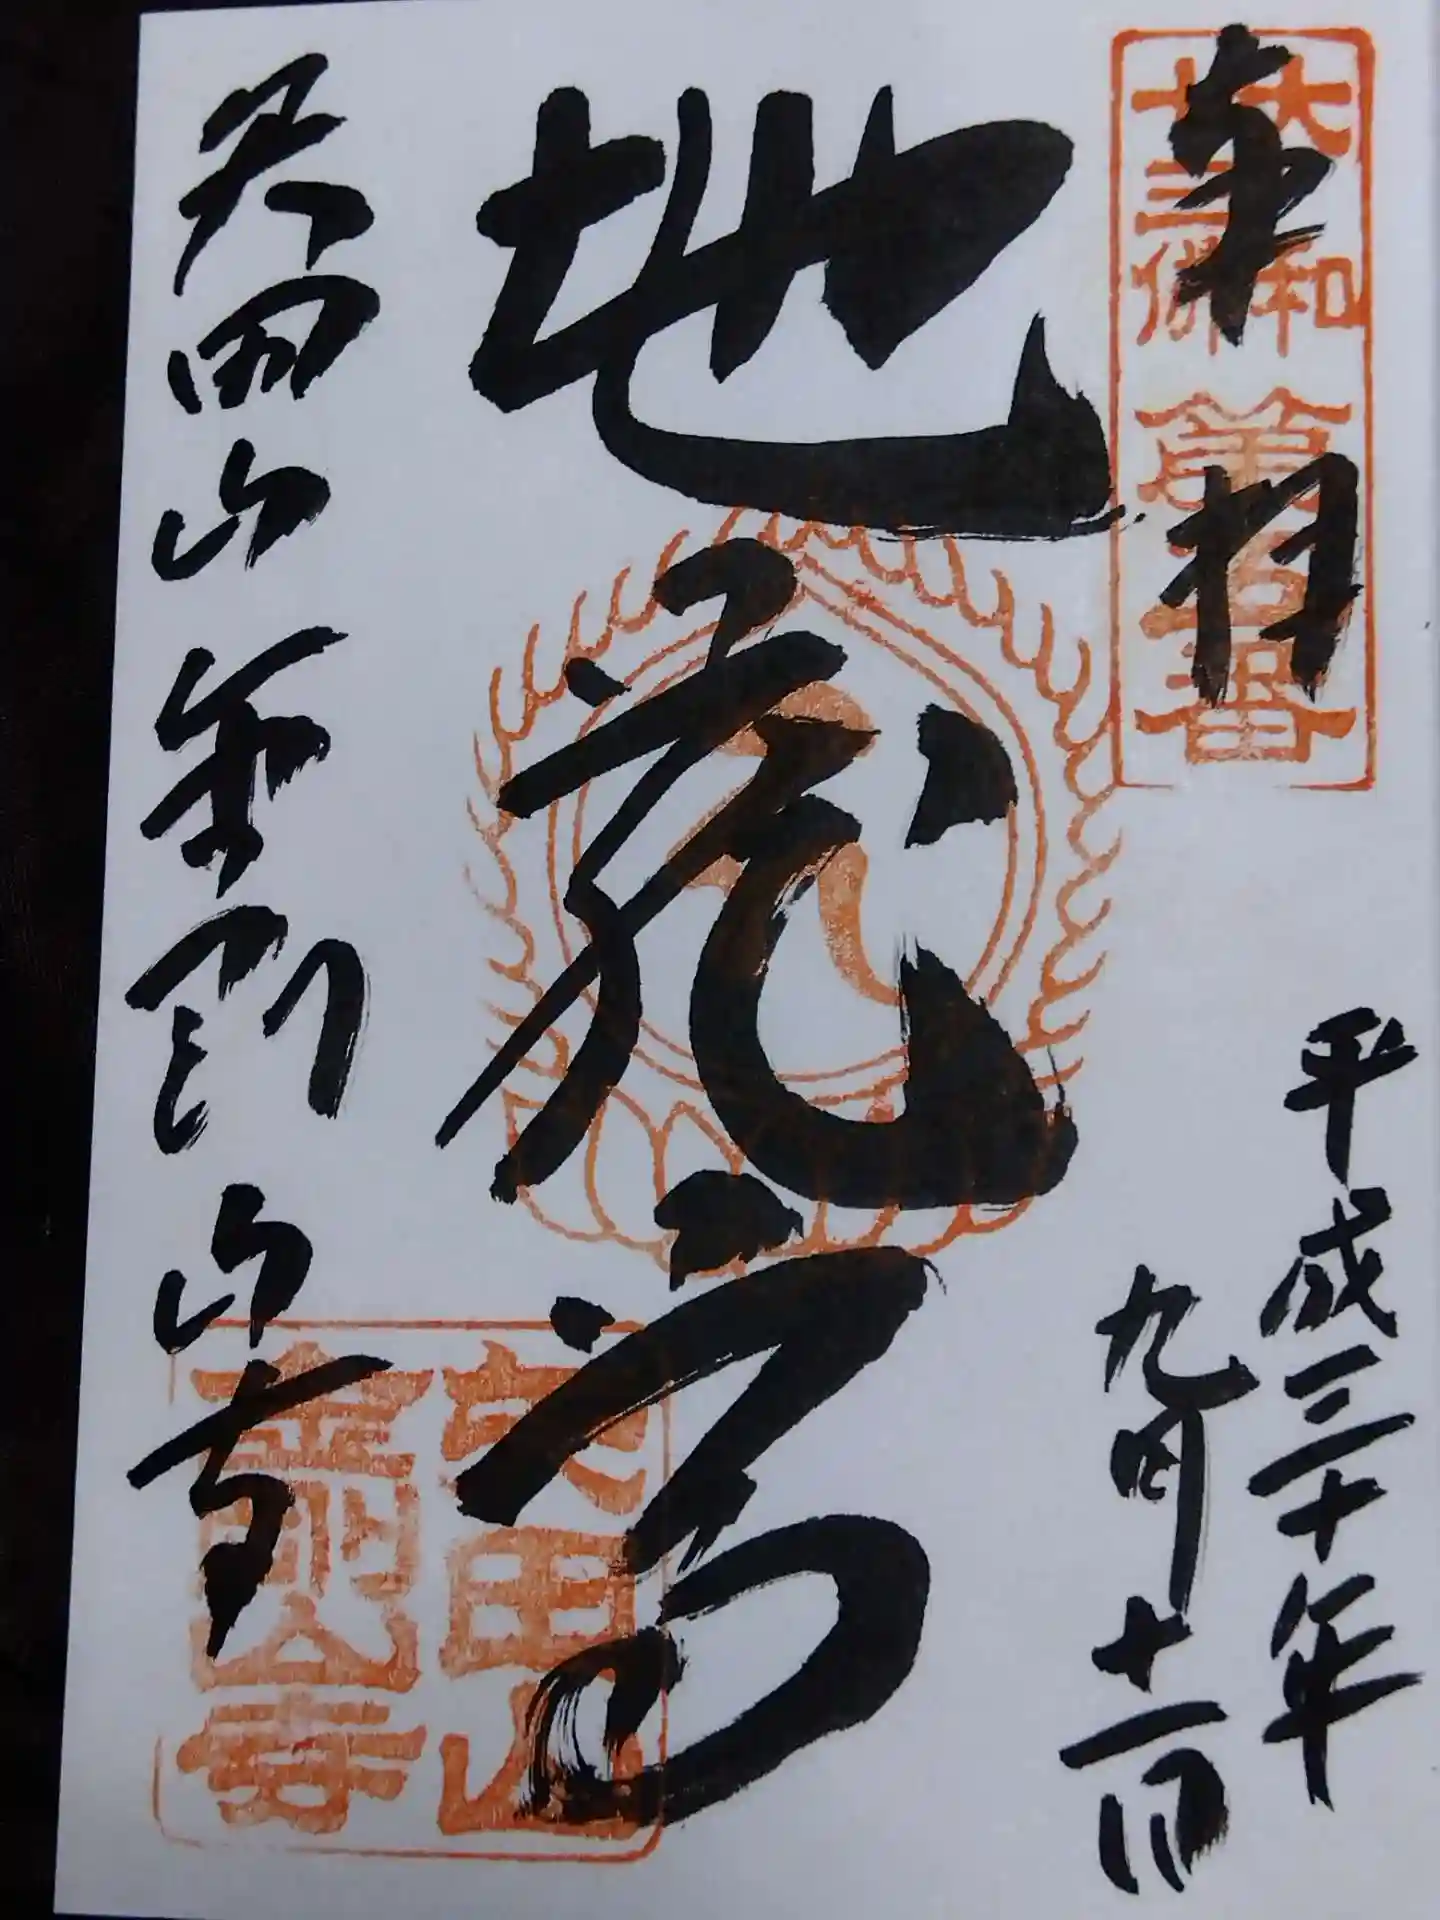 奉拝
大和
十三佛
第五番
平成三十年
九月十一日
地蔵尊
矢田山金剛山寺
矢田山
金剛山寺